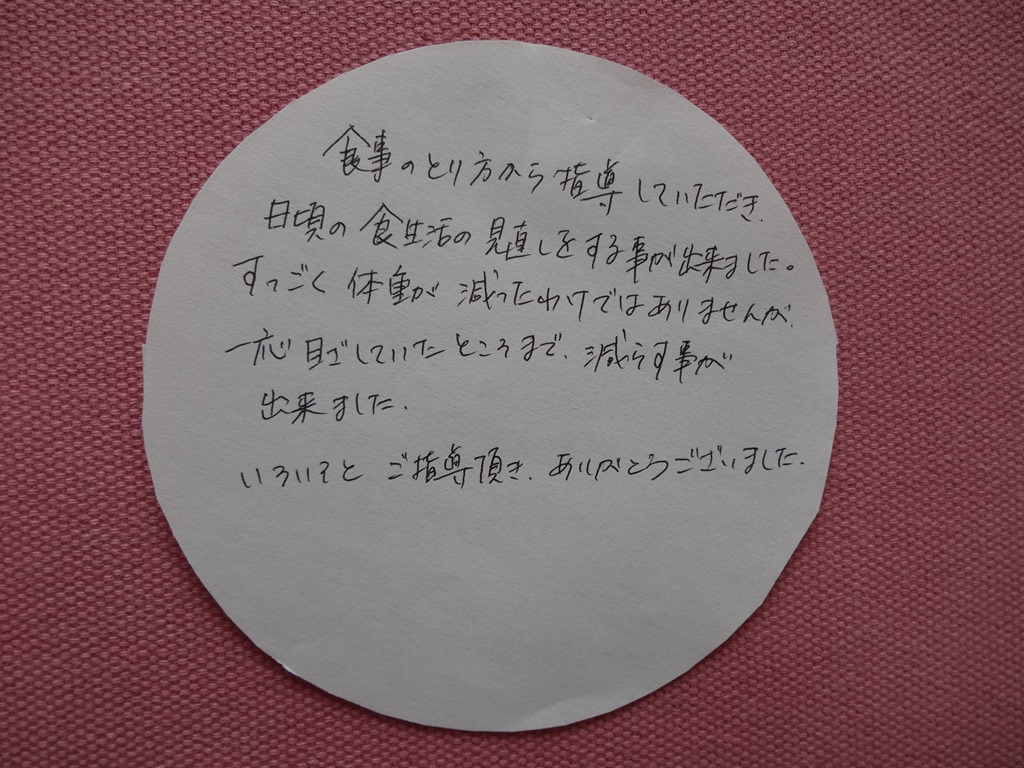 食事のとり方から指導していただき、
日頃の食生活の見直しをする事が出来ました。
すっごく体重が減ったわけではありませんが、
一応目ざしていたところまで、減らす事が
出来ました。
いろいろとご指導頂き、ありがとうございました。